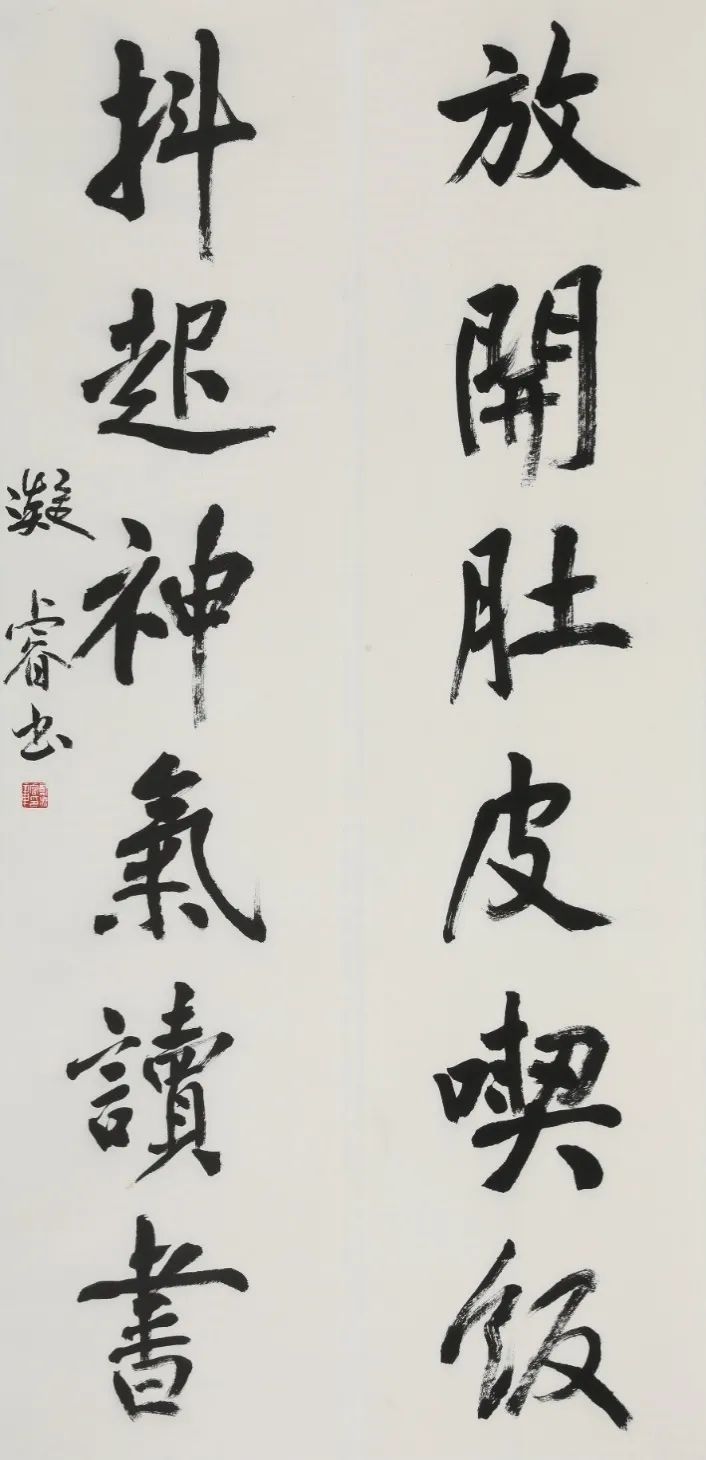 放開肚皮喫飯
抖起神氣讀書
凝睿书